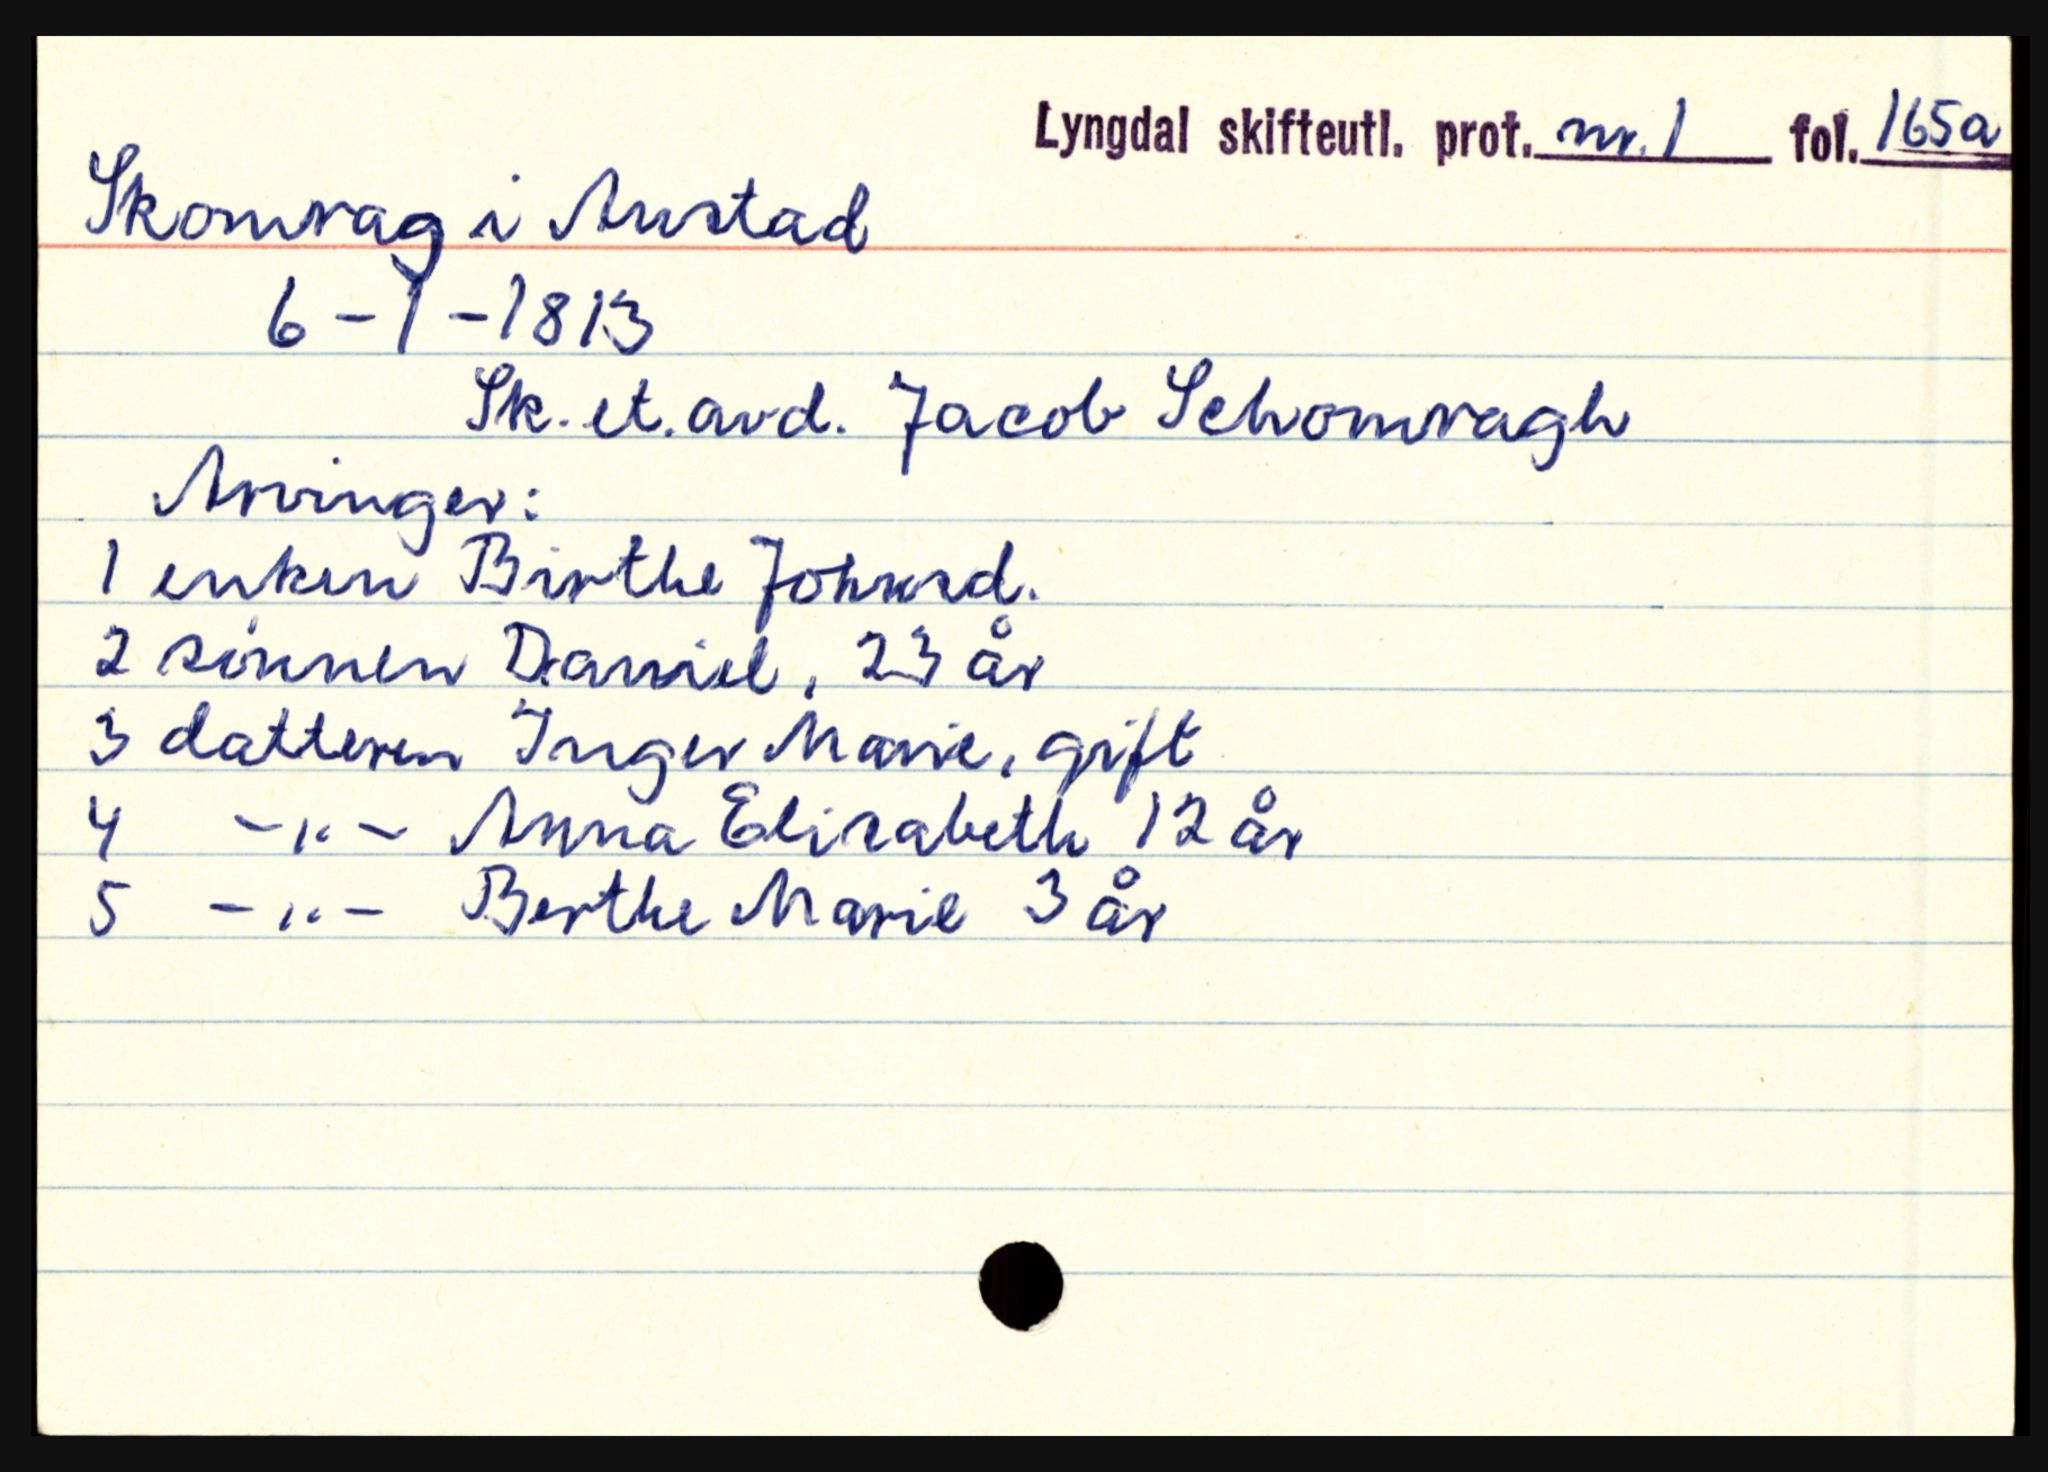 Lyngdal skifteutl. prot. nr. 1 fol. 165a
Skomrag i Austad
6-1-1813
Sk. et. avd. Jacob Schomragh
Arvinger:
1 enken Birthe Johnsd.
2 sönnen Daniel, 23 år
3 datteren Inger Marie, gift
4 -"- Anna Elisabeth 12 år
5 -"- Berthe Marie 3 år